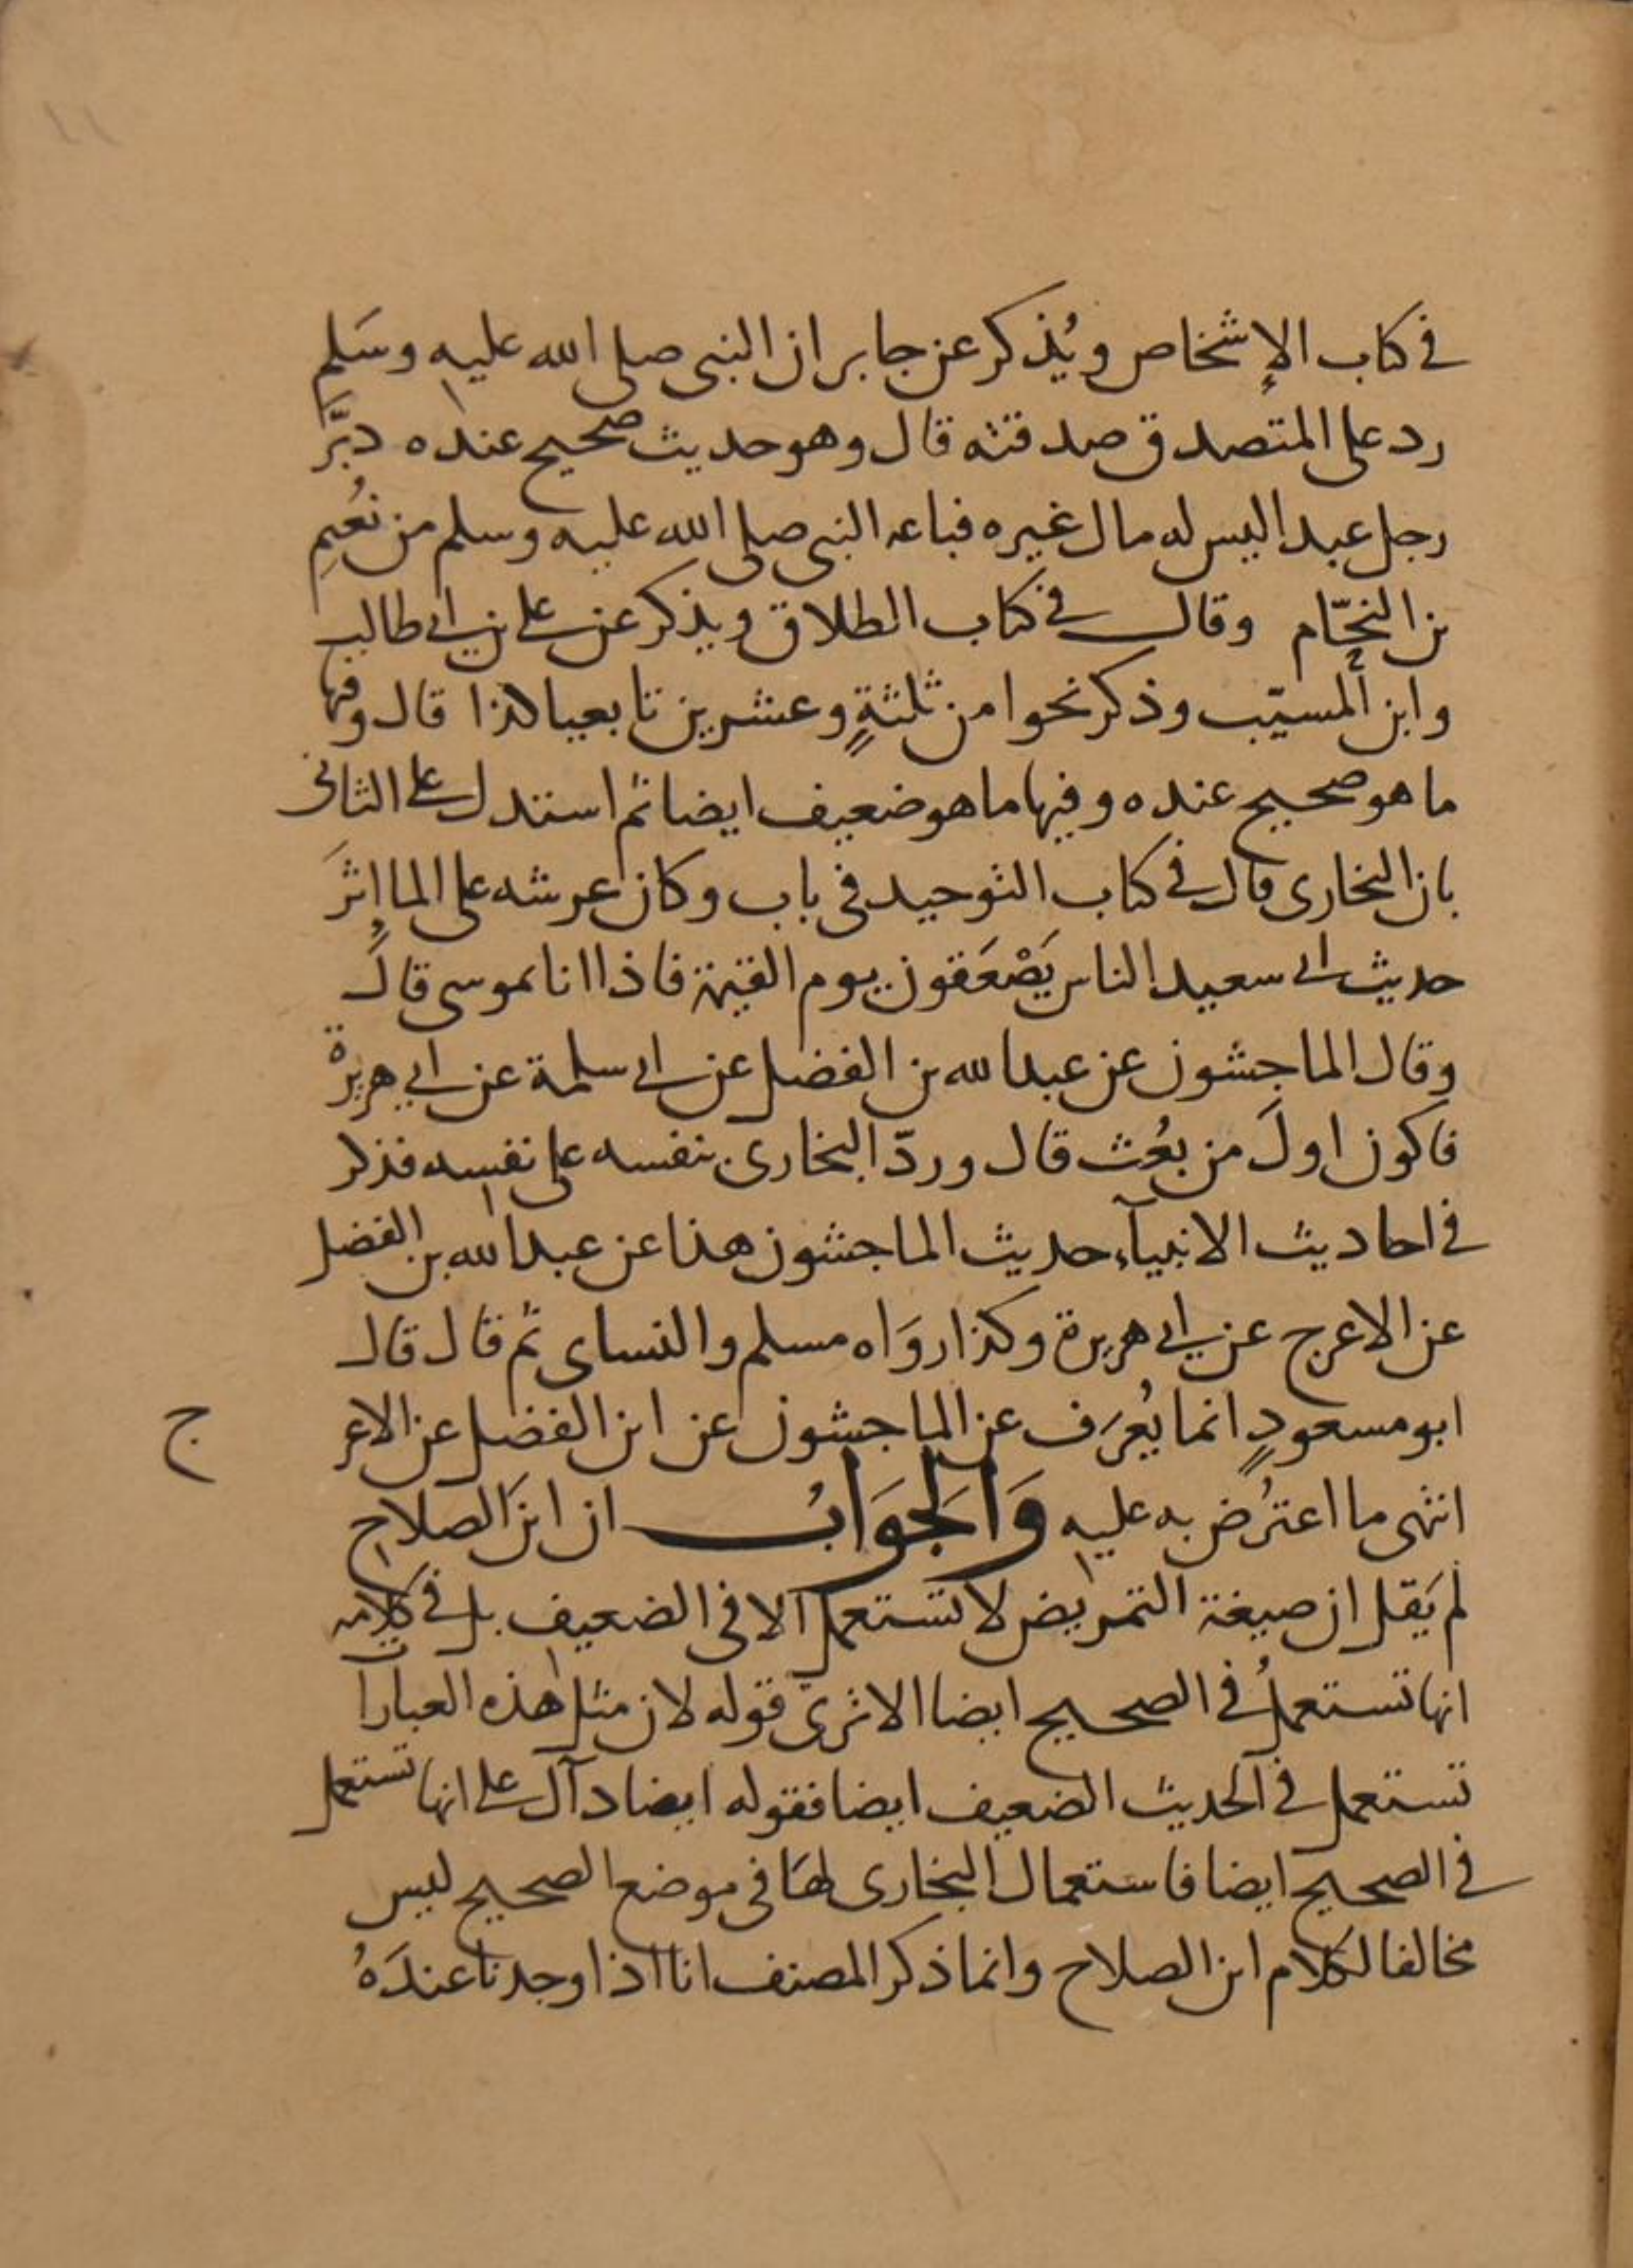 ١١
في كتاب الإشخاص ويُذكر عن جابر ان النبى صلى الله عليه وسَلم
رد على المتصدق صدقته قال وهو حديث صحيح عنده دبَّر
رجل عبدا ليس له مال غيره فباعه النبى صلى الله عليه وسلم من نُعُيمِ
بن النحّام وقال في كتاب الطلاق ويذكر عن على بن ابى طالب
وابن المسيّب وذكر نحوا من ثلثةٍ وعشرين تابعيا كذا قال وفيها
ما هو صحيح عنده وفيها ما هو ضعيف ايضا ثم استدل على الثانى
بان البخارى قال في كتاب التوحيد فى باب وكان عرشه على الما اِثرَ
حديث ابى سعيد الناس يَصْعَقون يوم القيمة فاذا انا بموسى قال
وقال الماجشون عن عبدالله بن الفضل عن ابى سلمة عن ابي هريرة
فاكون اولَ من بُعث قال وردّ البخارى بنفسه على نفسه فذكر
في احاديث الانبيآء حديث الماجشون هذا عن عبدالله بن الفضل
عن الاعرج عن ابى هريرة وكذا روَاه مسلم والنساى ثم قال قال
ابو مسعودٍ انما يُعرَف عن الماجشون عن ابن الفضل عن الاعر ج
انتهى ما اعترُض به عليه وَالجَوَابُ ان ابنَ الصلاح
لم يَقل ان صيغة التمريض لا تستعمل الا فى الضعيف بل في كلامه
انها تستعملُ في الصحيح ايضا الا ترى قوله لان مثل هذه العبارات
تستعمل في الحديث الضعيف ايضا فقوله ايضا دآل على انها تستعمل
في الصحيح ايضا فاستعمال البخارى لهَا فى موضع الصحيح ليس
مخالفا لكلام ابن الصلاح وانما ذكر المصنف انا اذا وجدنا عندَهُ